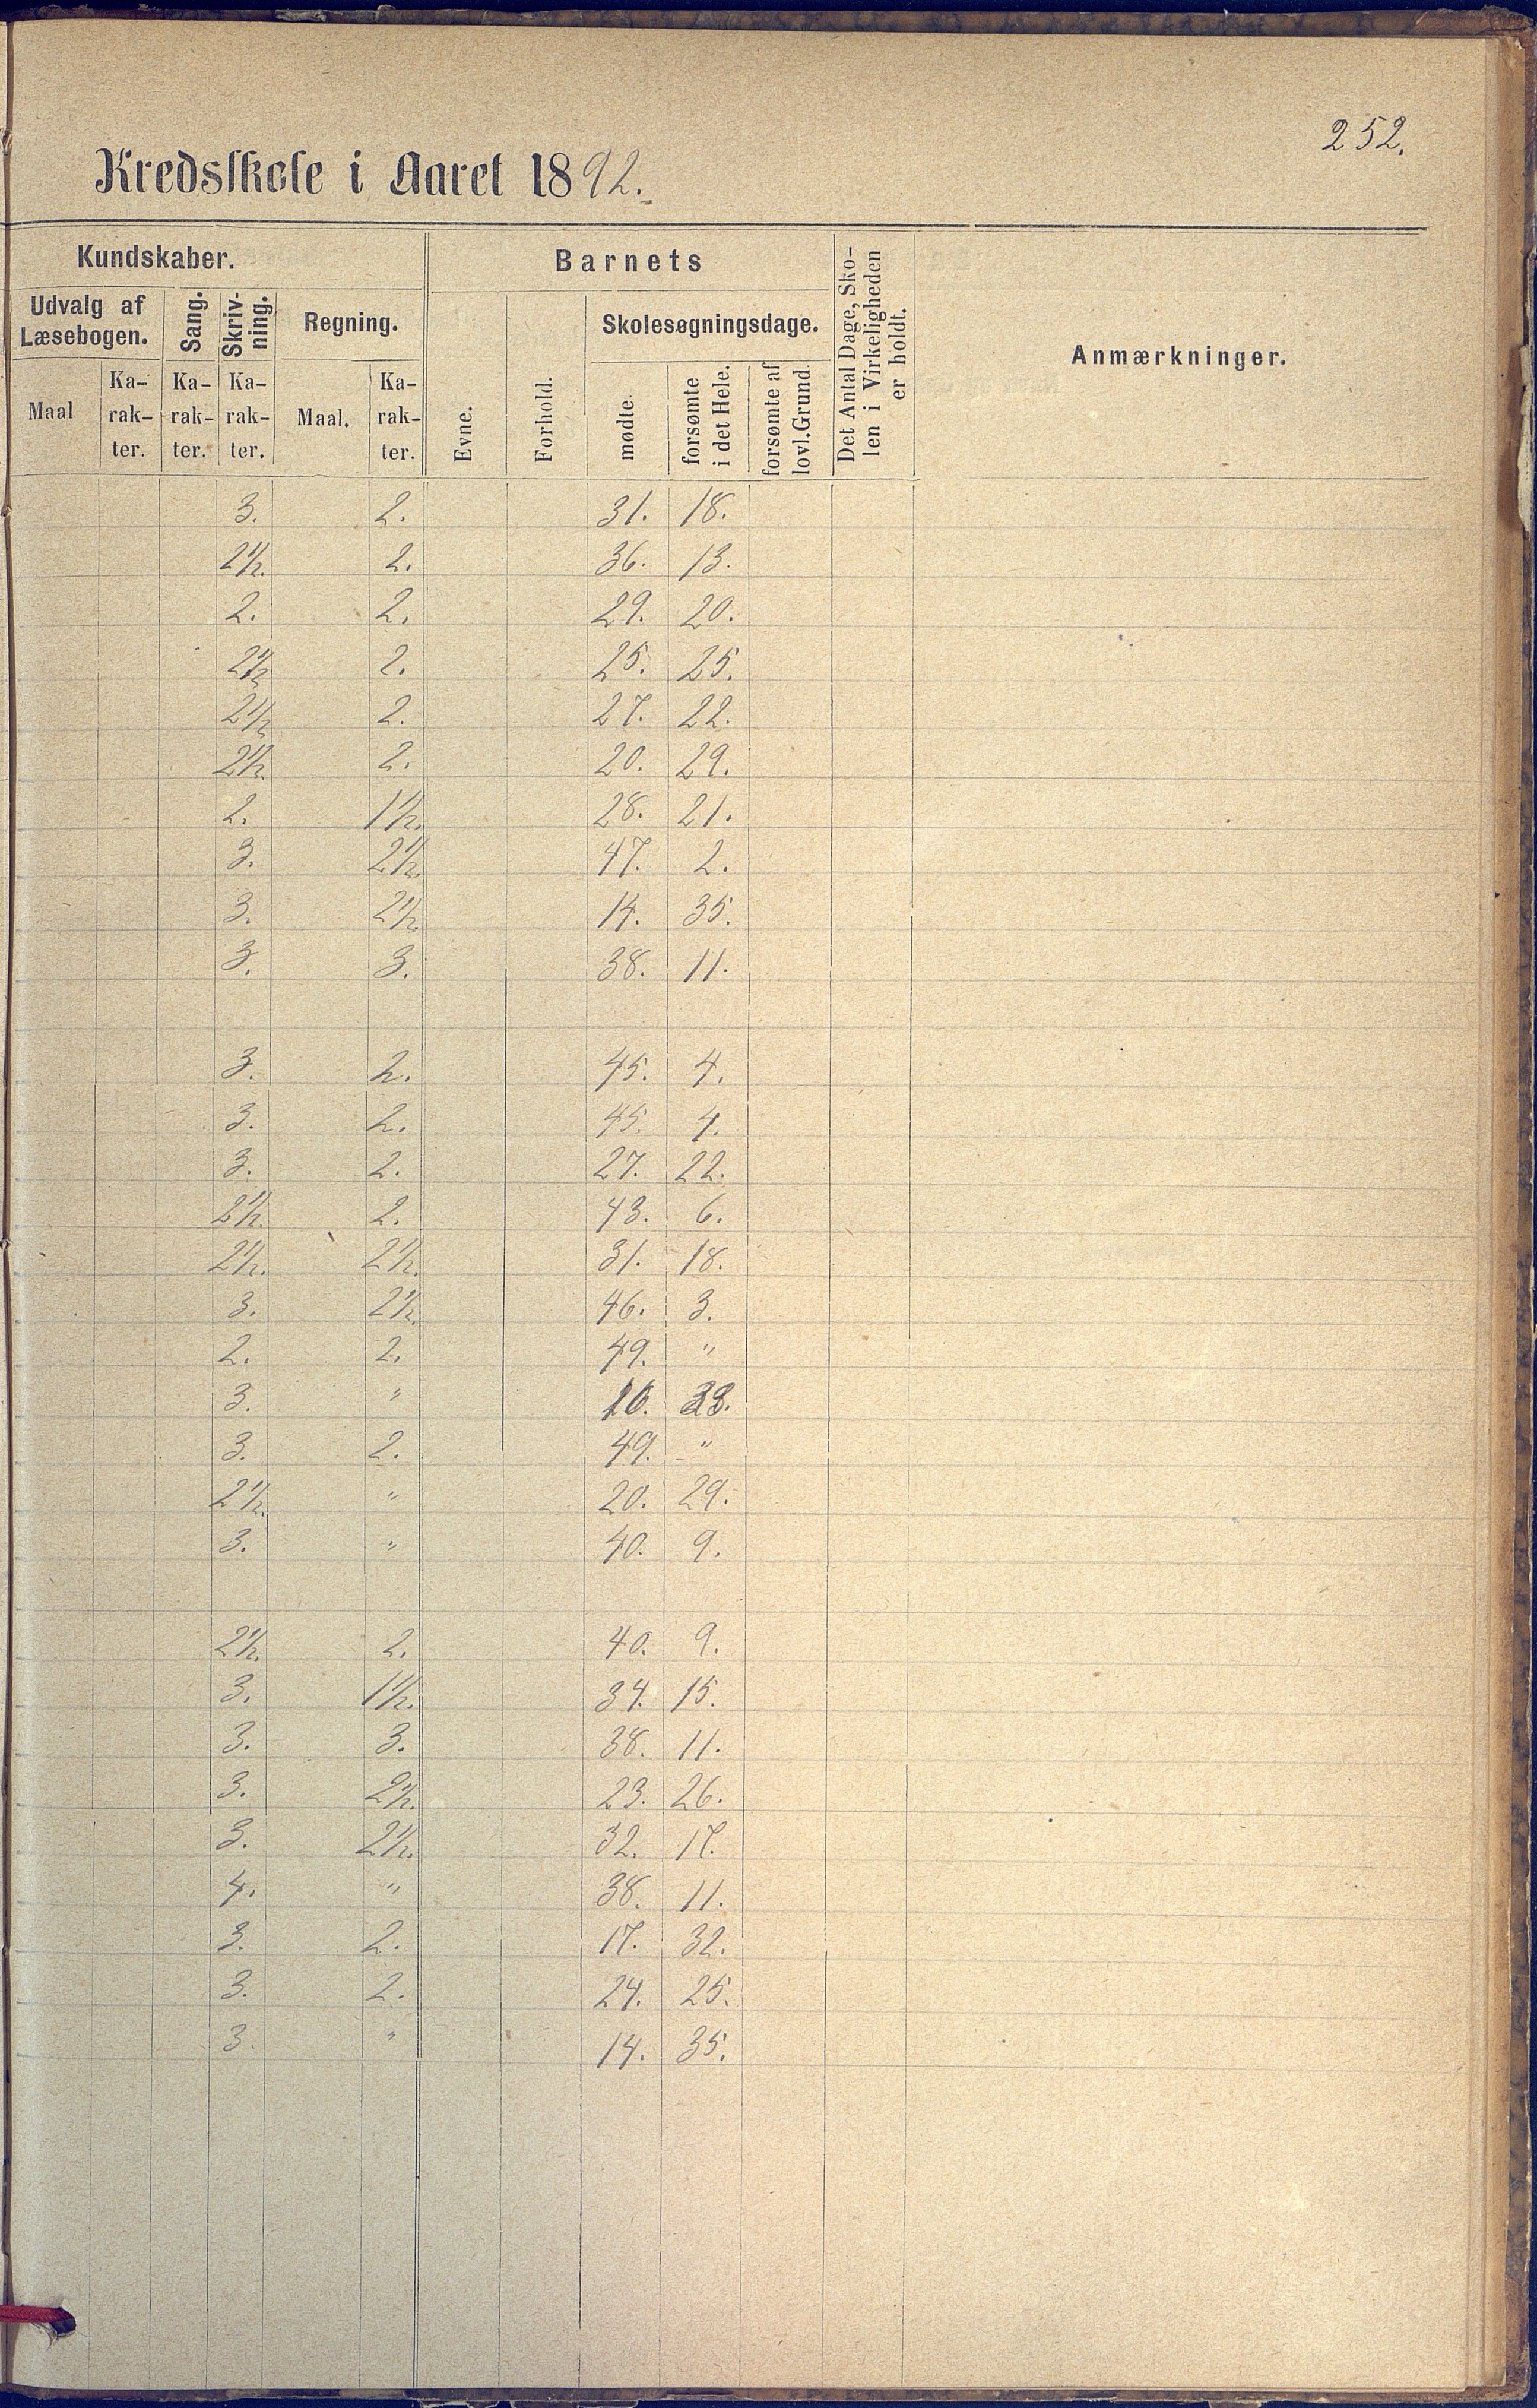 252.
Kredsskole i Aaret 1892.
Kundskaber. Barnets Det Antal Dage, Sko-len i Virkeligheden er holdt. Anmærkninger.
Udvalg af Læsebogen. Sang. Skriv-ning. Regning. Evne. Forhold. Skolesøgningsdage.
Maal Ka-rak-ter. Ka-rak-ter. Ka-rak-ter. Maal. Ka-rak-ter. mødte. forsømte i det Hele. forsømte af lovl. Grund.
3. 2. 31. 18.
2½. 2. 36. 13.
2. 2. 29. 20.
2½ 2. 25. 25.
2½ 2. 27. 22.
2½. 2. 20. 29.
2. 1½. 28. 21.
3. 2½. 47. 2.
3. 2½. 14. 35.
3. 3. 38. 11.
3. 2. 45. 4.
3. 2. 45. 4.
3. 2. 27. 22.
2½. 2. 43. 6.
2½. 2½. 31. 18.
3. 2½. 46. 3.
2. 2. 49. "
3. " 16. 33.
3. 2. 49. "
2½. " 20. 29.
3. " 40. 9.
2½. 2. 40. 9.
3. 1½. 34. 15.
3. 3. 38. 11.
3. 2½. 23. 26.
3. 2½. 32. 17.
4. " 38. 11.
3. 2. 17. 32.
3. 2. 24. 25.
3. " 14. 35.